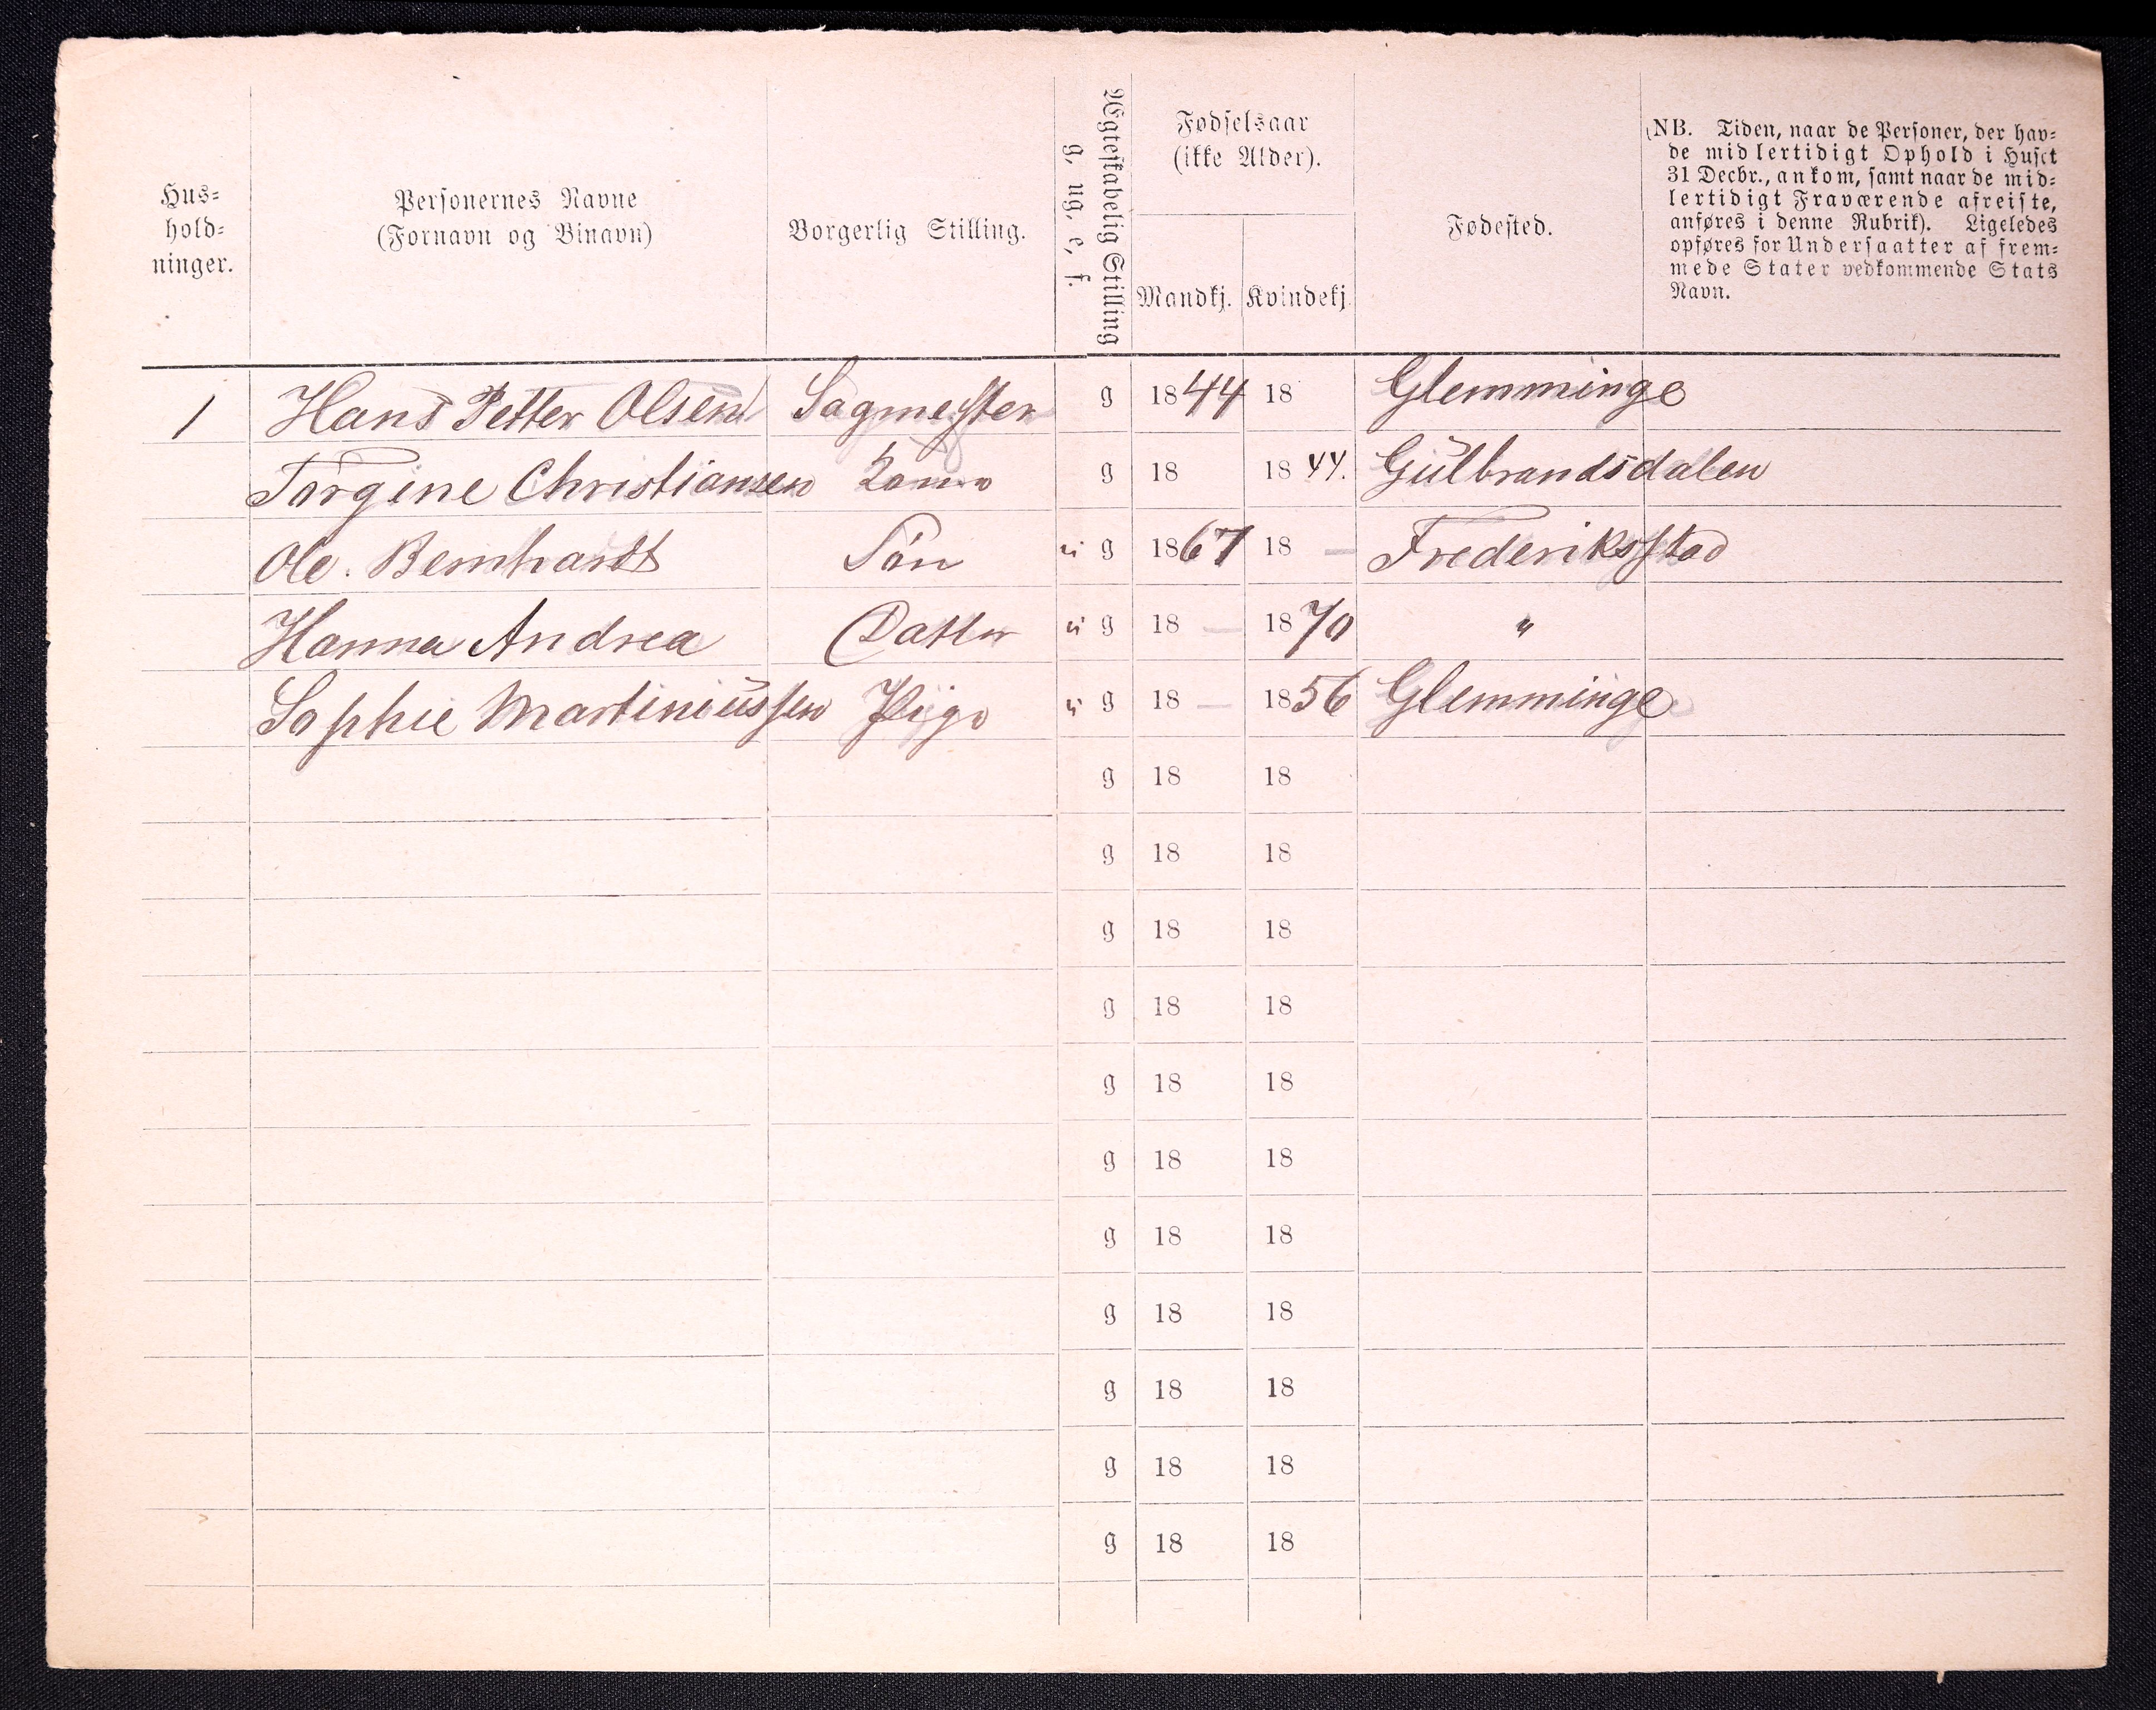 Hus-
hold-
ninger.
Personernes Navne
(Fornavn og Binavn)
Borgerlig Stilling.
Ægteskabelig Stilling
g, ug, e, f.
Fødselsaar
(ikke Alder).
Mandkj. Kvindekj.
Fødested.
(NB. Tiden, naar de Personer, der hav-
de midlertidigt Ophold i Huset
31 Decbr., ankom, samt naar de mid-
lertidigt Fraværende afreiste,
anføres i denne Rubrik). Ligeledes
opføres for Undersaatter af frem-
mede Stater vedkommende Stats
Navn.
1 Hans Petter Olsen Sagmester g 1844 18 Glemminge
Torgine Christiansen Kone g 18 1844. Gulbrandsdalen
Ole. Bernhardt Søn u g 1867 18 — Frederiksstad
Hanna Andrea Datter u g 18 — 1870 "
Sophie Martiniussen Pige u g 18 — 1856 Glemminge
g 18 18
g 18 18
g 18 18
g 18 18
g 18 18
g 18 18
g 18 18
g 18 18
g 18 18
g 18 18
g 18 18